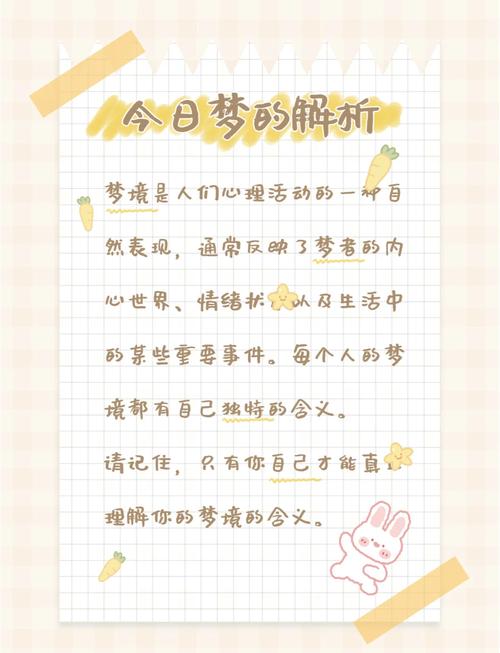 今日梦的解析
梦境是人们心理活动的一种自
然表现，通常反映了梦者的内
心世界、情绪状以及生活中
的某些重要事件。每个人的梦
境都有自己独特的含义。
请记住，只有你自己才能真
理解你的梦境的含义。